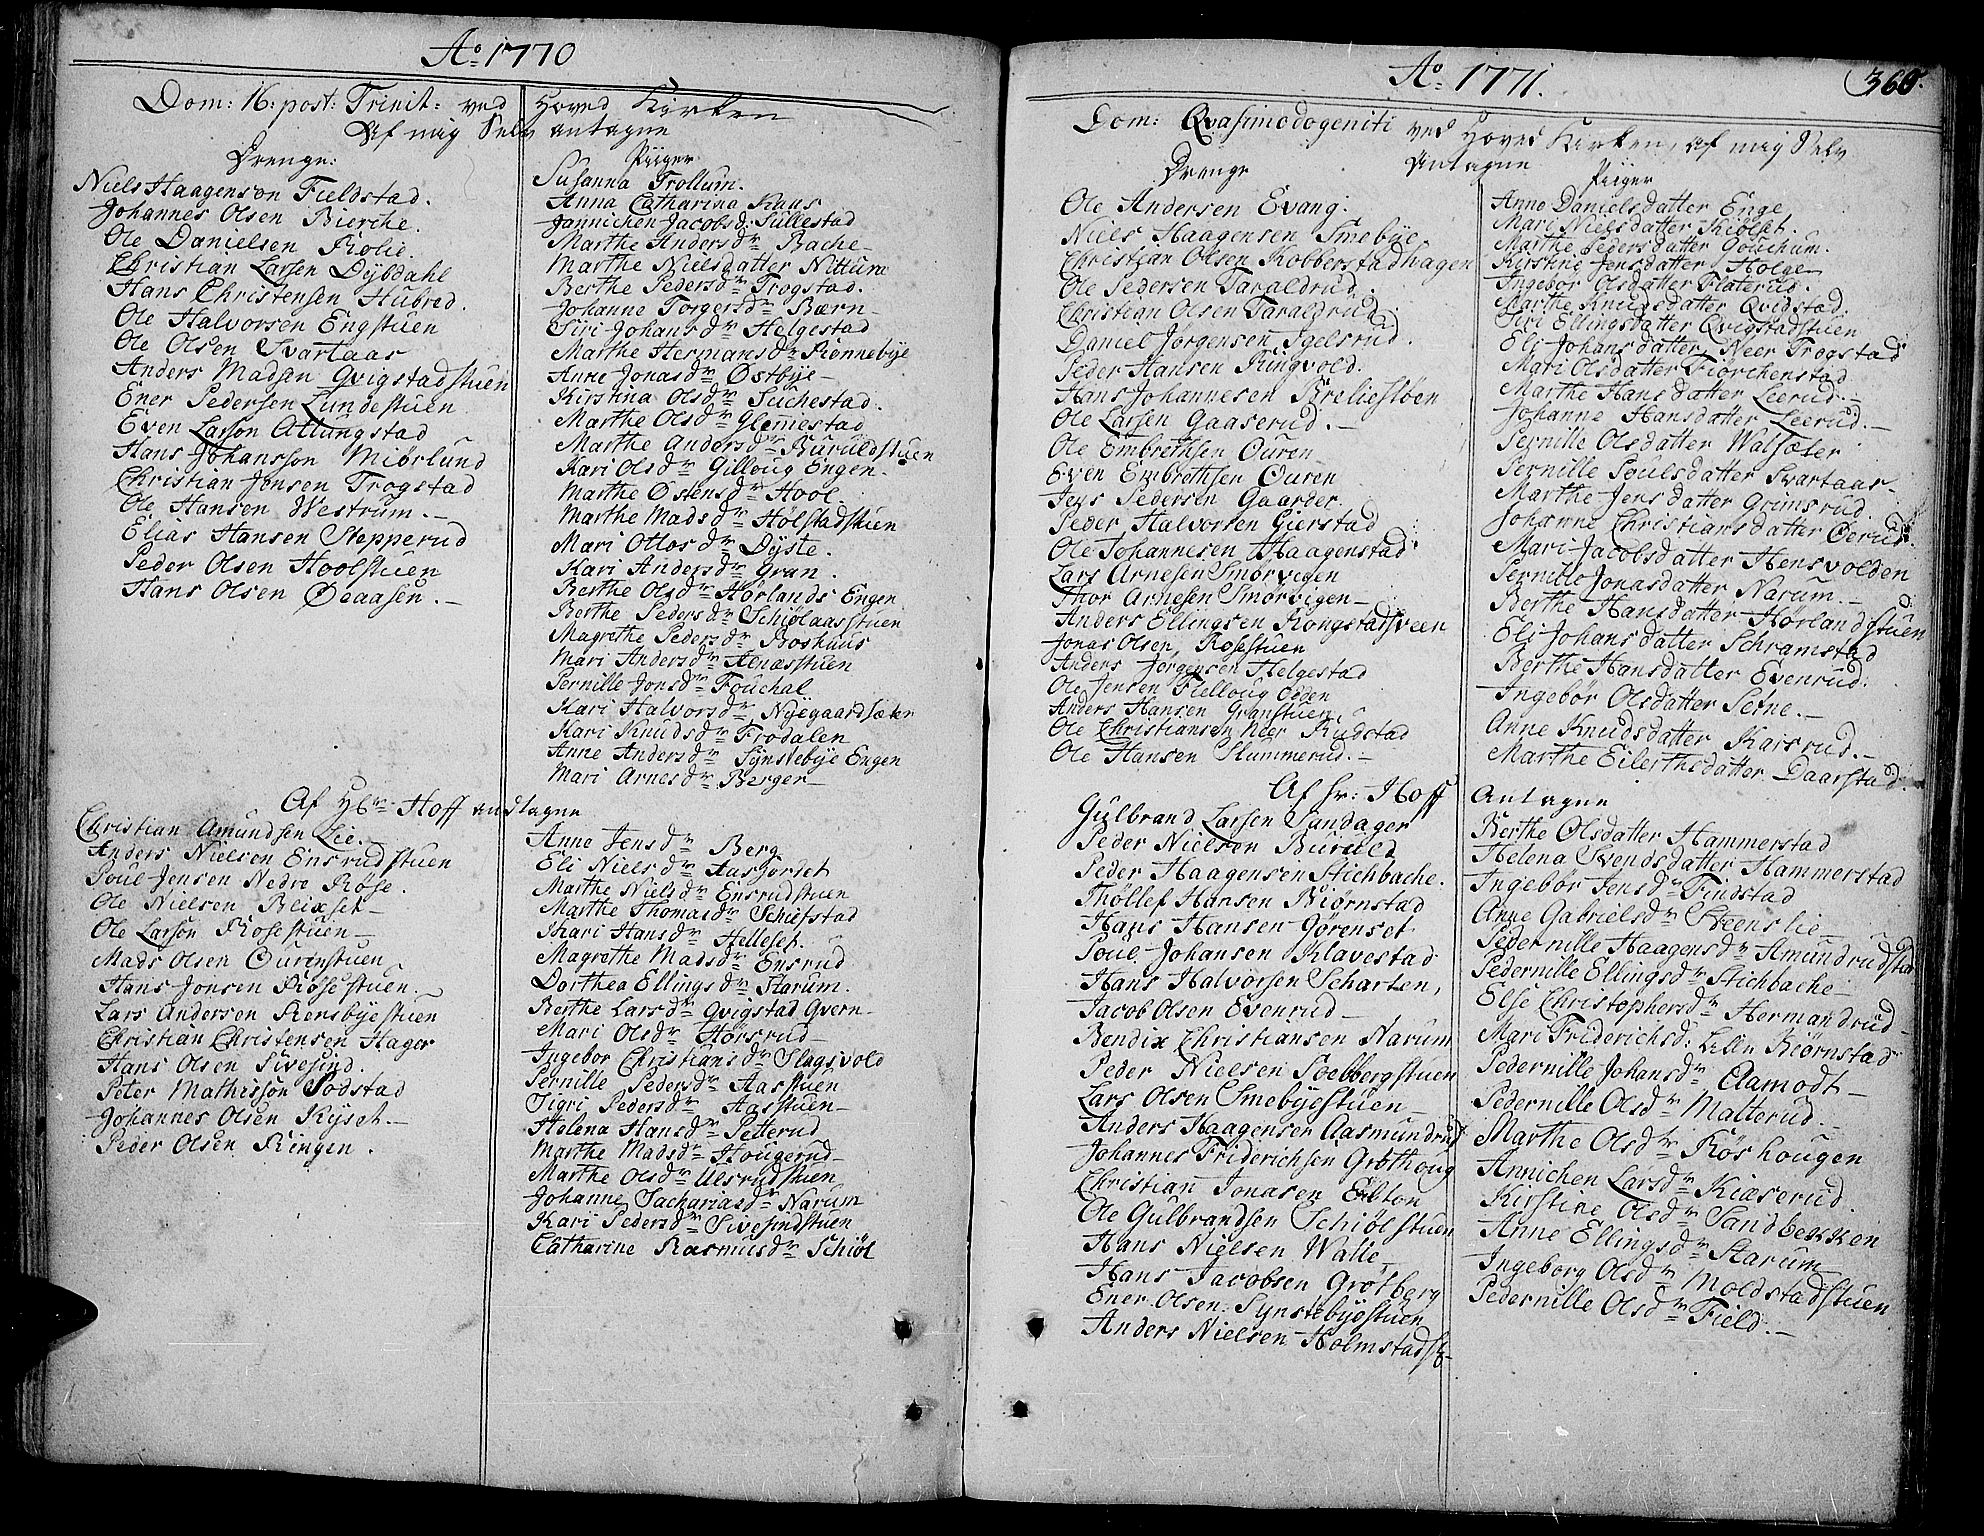 Ao 1770
Dom: 16: post: Trinit: ved Hoved Kirken
Af mig Selv antagne
Drenge:
Niels Haagenson Fieldstad.
Johannes Olsen Bierche.
Ole Danielsen Rolie.
Christian Larsen Dybdahl
Hans Christensen Hubred.
Ole Halvorsen Engstuen
Ole Olsen Svartaas
Anders Madsen Qvigstadstuen
Ener Pedersen Lundestuen
Even Larson Allungstad
Hans Johansson Miørlund
Christian Jonsen Trogstad
Ole Hansen Westrum.
Elias Hansen Stepperud
Peder Olsen Hoolstuen
Hans Olsen Ødaasen.
Piiger
Susanna Trollum.
Anna Catharina Hans
Jannichen Jacobsd: Sullestad
Marthe Andersdr Bache
Marthe Nielsdatter Nittum
Berthe Pedersdr Trogstad.
Johanne Torgersdr Bærn
Siri Johansdr Helgestad
Marthe Hermansdr Rønnebye
Anne Jonasdr Østbye
Kirstina Olsdr Suchestad.
Marthe Olsdr Glemestad
Marthe Andersdr Buruldstuen
Kari Olsdr Gilloug Engen.
Marthe Østensdr Hool.
Marthe Madsdr Hølstadstuen
Mari Ottosdr Dyste.
Kari Andersdr Gran.
Berthe Olsdr Hørlands Engen
Berthe Pedersdr Schiølaasstuen
Magrethe Pedersdr Boshuus
Mari Andersdr Aenæsstuen
Pernille Jonsdr Fouchal
Kari Halvorsdr Nyegaardsæter
Kari Knudsdr Frodalen
Anne Andersdr Synstebye Engen
Mari Arnesdr Berger
Af Hr Hoff andtagne
Christian Amundsen Lie.
Anders Nielsen Ensrudstuen
Poul Jensen Nedre Røse.
Ole Nielsen Blixset
Ole Larson Rosestuen
Mads Olsen Ourenstuen
Hans Jonsen Røsestuen.
Lars Andersen Rensbyestuen
Christian Christensen Hager
Hans Olsen Sivesind.
Peter Mathisson Sodstad
Johannes Olsen Kyset.
Peder Olsen Ringen.
Anne Jensdr Berg
Eli Nielsdr Aasjordet
Marthe Nielsdr Ensrudstuen
Marthe Thomasdr Schiefstad
Kari Hansdr Helleset.
Magrethe Madsdr Ensrud
Dorthea Ellingsdr Starum.
Berthe Larsdr Qvigstad Qvern
Mari Olsdr Hørsrud
Ingebor Christiansdr Slagsvold
Pernille Pedersdr Aasstuen
Sigri Pedersdr Aasstuen
Helena Hansdr Petterud
Marthe Madsdr Hougerud
Marthe Olsdr Ulsrudstuen
Johanne Sachariasdr Narum
Kari Pedersdr Sivesindstuen
Catharine Rasmusdr Schiøl
360.
Ao 1771.
Dom: Qvasimodogeniti ved Hoved Kirken, af mig Selv
Antagne
Drenge
Ole Andersen Evang.
Niels Haagensen Smebye.
Christian Olsen Kobberstadhagen
Ole Pedersen Taraldrud.
Christian Olsen Taraldrud
Daniel Jørgensen Igelsrud.
Peder Hansen Ringvold.
Hans Johannesen Breliesløen
Ole Larsen Gaaserud.
Ole Embrethsen Ouren
Even Embrethsen Ouren
Jens Pedersen Gaarder
Peder Halvorsen Gierstad
Ole Johannesen Haagenstad
Lars Arnesen Smørvigen
Thor Arnesen Smørvigen
Anders Ellingsen Kongstadsveen
Jonas Olsen, Rosestuen
Anders Jørgensen Helgestad
Ole Jensen Fielloug Odden
Anders Hansen Granstuen
Ole Christiansen Neer Rudstad
Ole Hansen Slummerud.
Piiger
Anne Danielsdatter Enge
Mari Nielsdatter Kiølset.
Marthe Pedersdatter Gouchum.
Kirstine Jensdatter Holgen
Ingebor Olsdatter Flaterud.
Marthe Knudsdatter Qvigstad
Siri Ellingsdatter Qvigstadstuen
Eli Johansdatter Neer Trogstad
Mari Olsdatter Fiørchenstad
Marthe Hansdatter Leerud.
Johanne Hansdatter Leerud.
Pernille Olsdatter Walsæter
Pernille Poulsdatter Svartaas
Marthe Jensdatter Grimsrud
Johanne Christiansdatter Oerud.
Mari Jacobsdatter Hensvolden
Pernille Jonasdatter Narum.
Berthe Hansdatter Hørlandstuen
Eli Johansdatter Schramstad
Berthe Hansdatter Evenrud.
Ingebør Olsdatter Setne.
Anne Knudsdatter Karsrud.
Marthe Eilerthsdatter Daarstad.
Af Hr: Hoff Antagne
Gulbrand Larsen Sandager
Peder Nielsen Buruld
Peder Haagensen Stichbache.
Thøllef Hansen Biørnstad
Hans Hansen Gørenset
Poul Johansen Klavestad
Hans Halvorsen Scharten,
Jacob Olsen Evenrud
Bendix Christiansen Narum
Peder Nielsen Soelbergstuen
Lars Olsen Smebyestuen
Anders Haagensen Aasmundrud
Johannes Friderichsen Grøthoug
Christian Jonasen Eilton
Ole Gulbrandsen Schiølstuen
Hans Nielsen Walle
Hans Jacobsen Grøtberg
Ener Olsen: Synstebyestuen
Anders Nielsen Holmstadst
Berthe Olsdatter Hammerstad
Helena Svendsdatter Hammerstad
Ingebør Jensdr Findstad
Anne Gabrielsdr Steenslie
Pedernille Haagensdr Amundrudstu
Pedernille Ellingsdr Stichbache
Else Christophersdr Hermandrud
Mari Friderichsd: Lille Biørnstad
Pedernille Johansdr Aamodt
Pedernille Olsdr Malterud.
Marthe Olsdr Røshougen
Annichen Larsdr Kiaserud.
Kirstine Olsdr Sandbekken
Anne Ellingsdr Starum
Ingeborg Olsdr Moldstadstuen
Pedernille Olsdr Field.